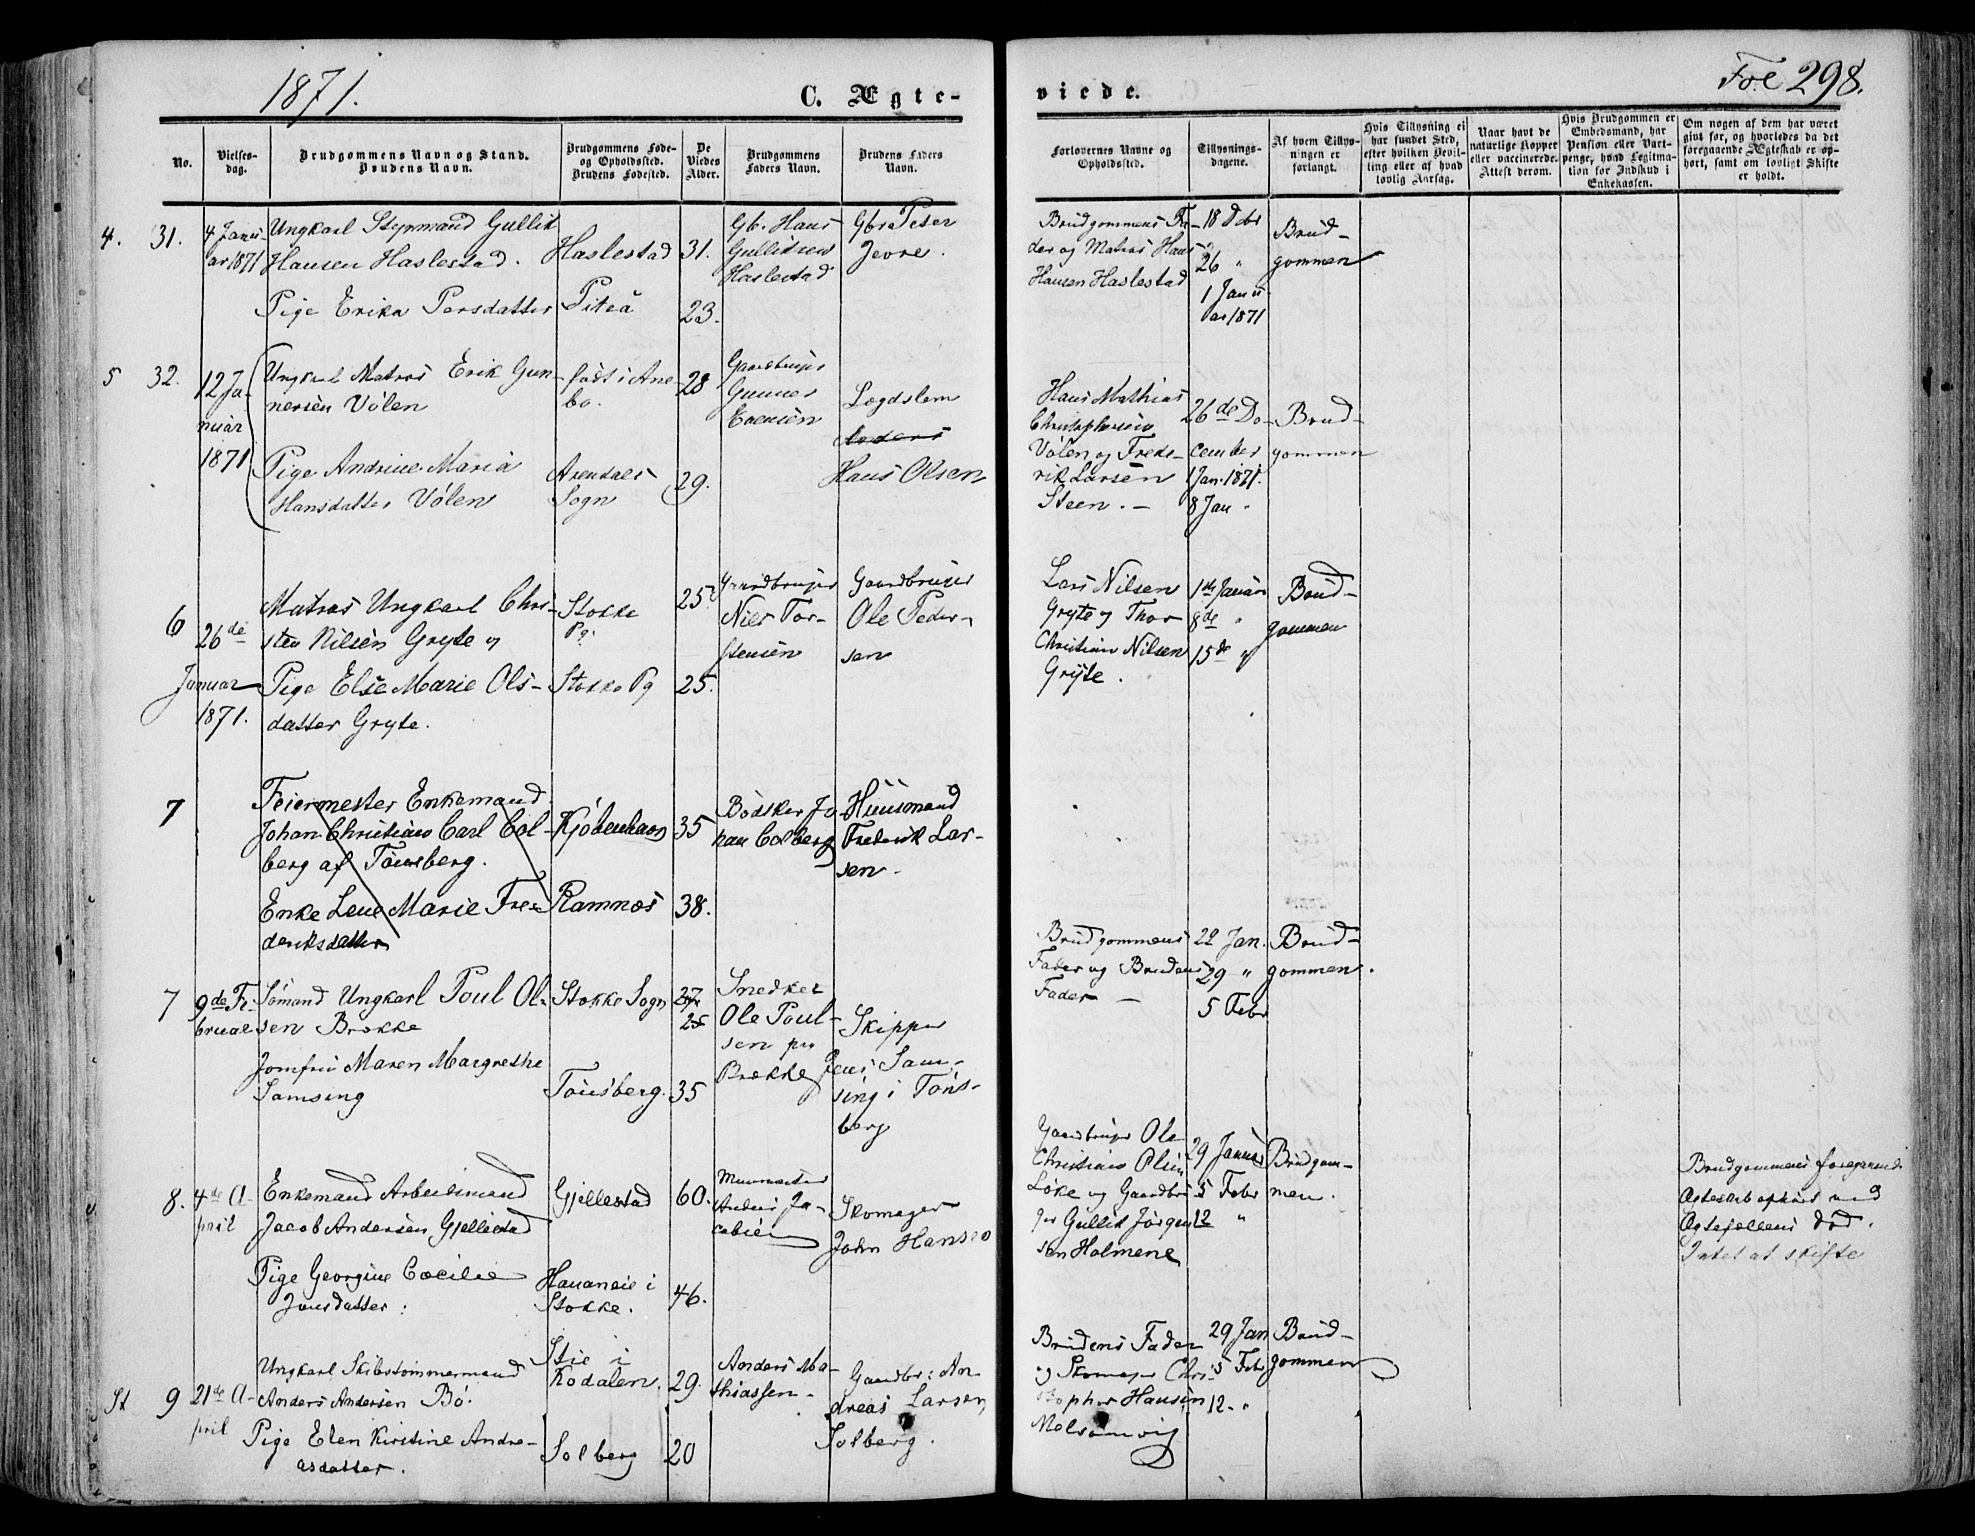 1871.
C. Ægte-
viede.
Fol 298.
No.
Vielses-
dag.
Brudgommens Navn og Stand.
Brudens Navn.
Brudgommens Føde-
og Opholdssted.
Brudens Fødested.
De
Viedes
Alder.
Brudgommens
Faders Navn.
Brudens Faders
Navn.
Forlovernes Navne og
Opholdssted.
Tillysnings-
dagene.
Af hvem Tillys-
ningen er
forlangt.
Hvis Tillysning ei
har fundet Sted,
efter hvilken Bevil-
ling eller af hvad
lovlig Aarsag.
Naar havt de
naturlige Kopper
eller vaccinerede.
Attest derom.
Hvis Brudgommen er
Embedsmand, har
Pension eller Vart-
penge, hvad Legitima-
tion for Indskud i
Enkekassen.
Om nogen af dem har været
gift før, og hvorledes da det
foregaaende Ægteskab er op-
hørt, samt om lovligt Skifte
er holdt.
4. 31.
4 Janu-
ar 1871
Ungkarl Styrmand Gullik
Hansen Haslestad.
Pige Erika Persdatter
Haslestad
Piteå
31.
23.
Gb. Hans
Gulliksen
Haslestad
Gbr Peter
Brudgommens Fa-
der og Matros Hans
Hansen Haslestad
18 Debr
26 "
1 Janu-
ar 1871
Brud-
gommen
5 32.
12 Ja-
nuar
1871
Ungkarl Matros Erik Gun-
nersen Vølen
Pige Andrine Maria
Hansdatter Vølen
født i Ane-
bo.
Arendals
Sogn
28
29.
Gaardbruger
Gunner
Lægdslem
Anders
Hans Olsen
Hans Mathias
Christophersen
Vølen og Frede-
rik Larsen
Steen. -
26de De-
cember
1 Jan. 1871.
8 Jan "
Brud-
gommen
6
26de
Januar
1871.
Matros Ungkarl Chri-
sten Nilsen Gryte og
Pige Else Marie Ols-
datter Gryte.
Stokke
Pg.
Stokke Pg
25
25.
Gaardbruger
Niels Tor-
stensen
Gaardbruger
Ole Peder-
sen
Lars Nilsen
Gryte og Thor
Christian Nilsen
Gryte.
1ste Januar
8de "
15de "
Brud-
gommen
7
Feiermester Enkemand
Johan Christian Carl Col-
berg af Tønsberg.
Enke Lene Marie Fre-
deriksdatter
Kjøbenhavn
Ramnæs
35
38.
Bødsker Jo-
han Colberg
Huusmand
Frederik Lar-
sen.
7
9de Fe-
bruar
Sømand Ungkarl Poul Ol-
sen Brekke
Jomfru Maren Margrethe
Samsing
Stokke Sogn
Tønsberg.
27
25
35
Snedker
Ole Poul-
sen paa
Brekke
Skipper
Jens Sam-
sing i Tøns-
berg
Brudgommens
Fader og Brudens
Fader -
22 Jan.
29 "
5 Febr
Brud-
gommen.
8.
4de A-
pril
Enkemand Arbeidsmand
Jacob Andersen Gjellestad
Pige Georgine Cæcilie
Jonsdatter.
Gjellestad
Hauaneie i
Stokke.
60.
46.
Murmester
Anders Ja-
cobsen
Skomager
John Hansen
Gaardbruger Ole
Christian Olsen
Løke og Gaardbru-
ger Gullik Jørgen-
sen Holmene
29 Januar
5 Febr
12 "
Brudgom-
men.
Brudgommens foregaaende
Ægteskab ophørt ved
Ægtefællens død.
Intet at skifte
St 9
21de A-
pril
Ungkarl Skibstømmermand
Anders Andersen Bø.
Pige Elen Kirstine Andre-
asdatter.
Stie i
Kodalen.
Solberg
29.
20
Anders Ma-
thiassen.
Gaardbr: An-
dreas Larsen
Solberg.
Brudens Fader
og Skomager Chri-
stopher Hansen
Melsomvig
29 Jan
5 Febr
12. "
Brud-
gommen